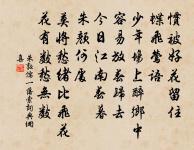 慣被好花留住
蝶飛鶯語
少年場上醉鄉中
容易放春歸去
今日江南春暮
朱顏何處
莫將愁緒比飛花
花有數愁無數
朱敦儒一落索詞典網